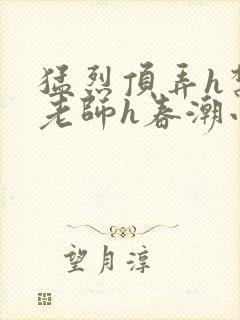 猛烈頂弄h
老師h春潮
望月淳